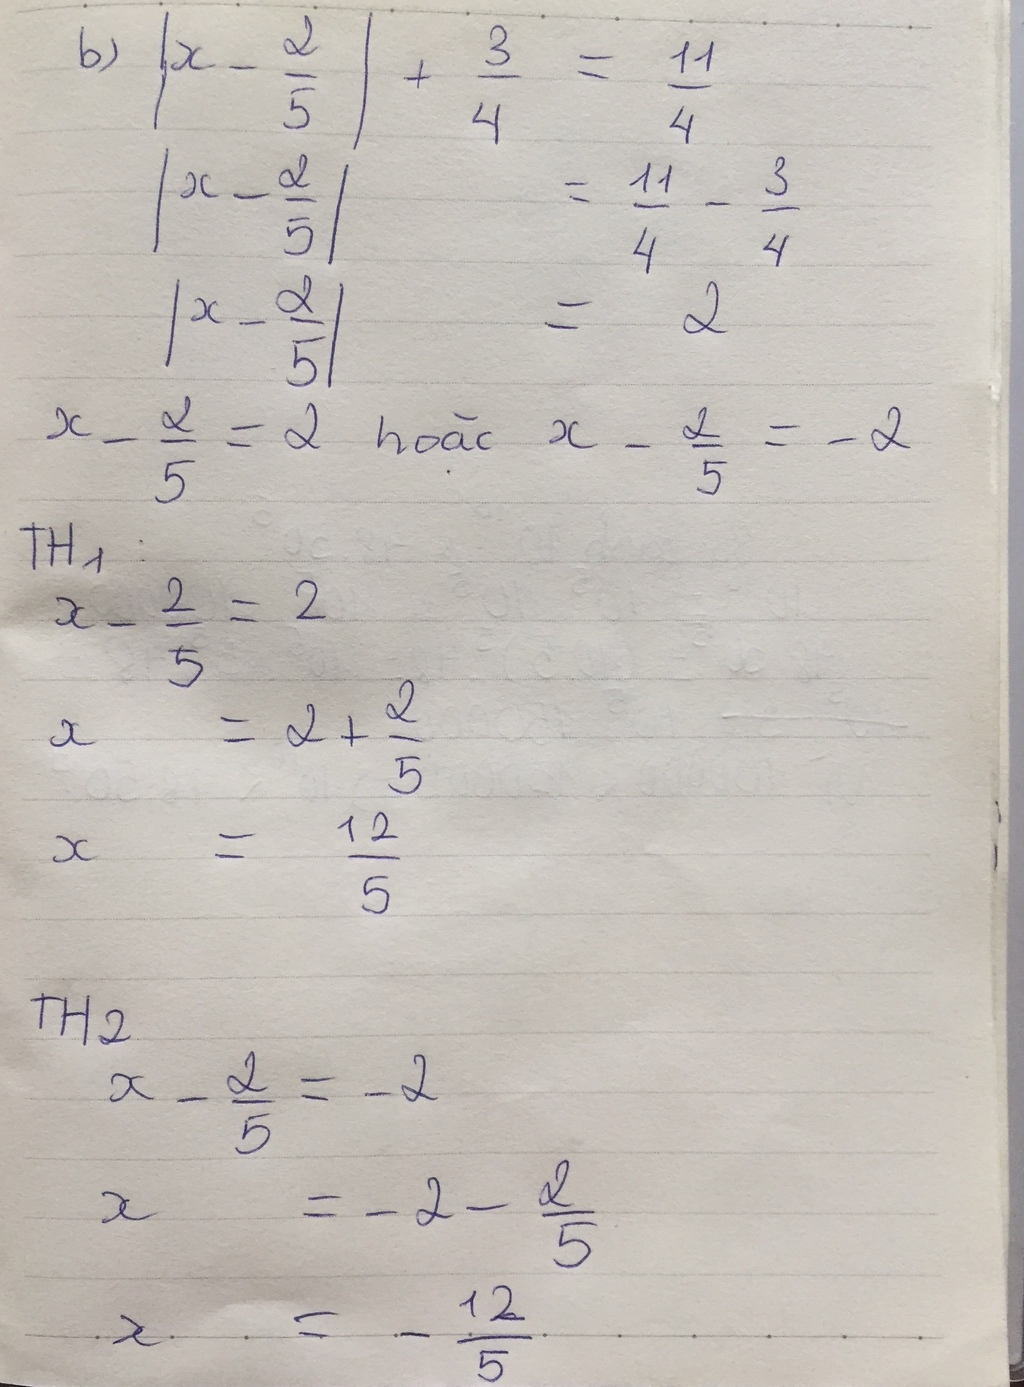 b) |x - 2/5| + 3/4 = 11/4
|x - 2/5| = 11/4 - 3/4
|x - 2/5| = 2
x - 2/5 = 2 hoặc x - 2/5 = -2
TH1:
x - 2/5 = 2
x = 2 + 2/5
x = 12/5
TH2
x - 2/5 = -2
x = -2 - 2/5
x = -12/5